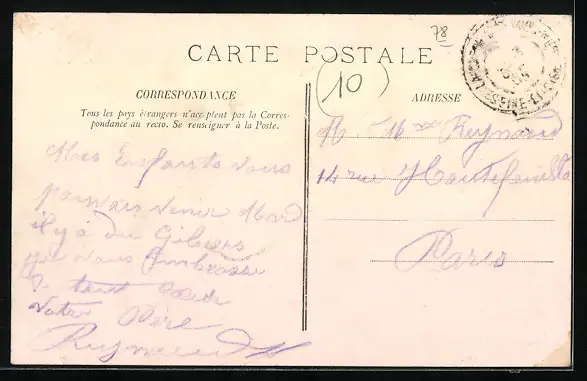 78
CARTE POSTALE
(10)
CORRESPONDANCE
Tous les pays étrangers n'acceptent pas la Corres-
pondance au recto. Se renseigner à la Poste.
ADRESSE
SEINE-ET-OISE
Mes Enfants vous
pouvais venir Mard
il y a du Gibiers
je vous Embrasse
de tout Coeur
Votre Père
Reymond
M. Mme Reymond
14 rue Hautefeuille
Paris